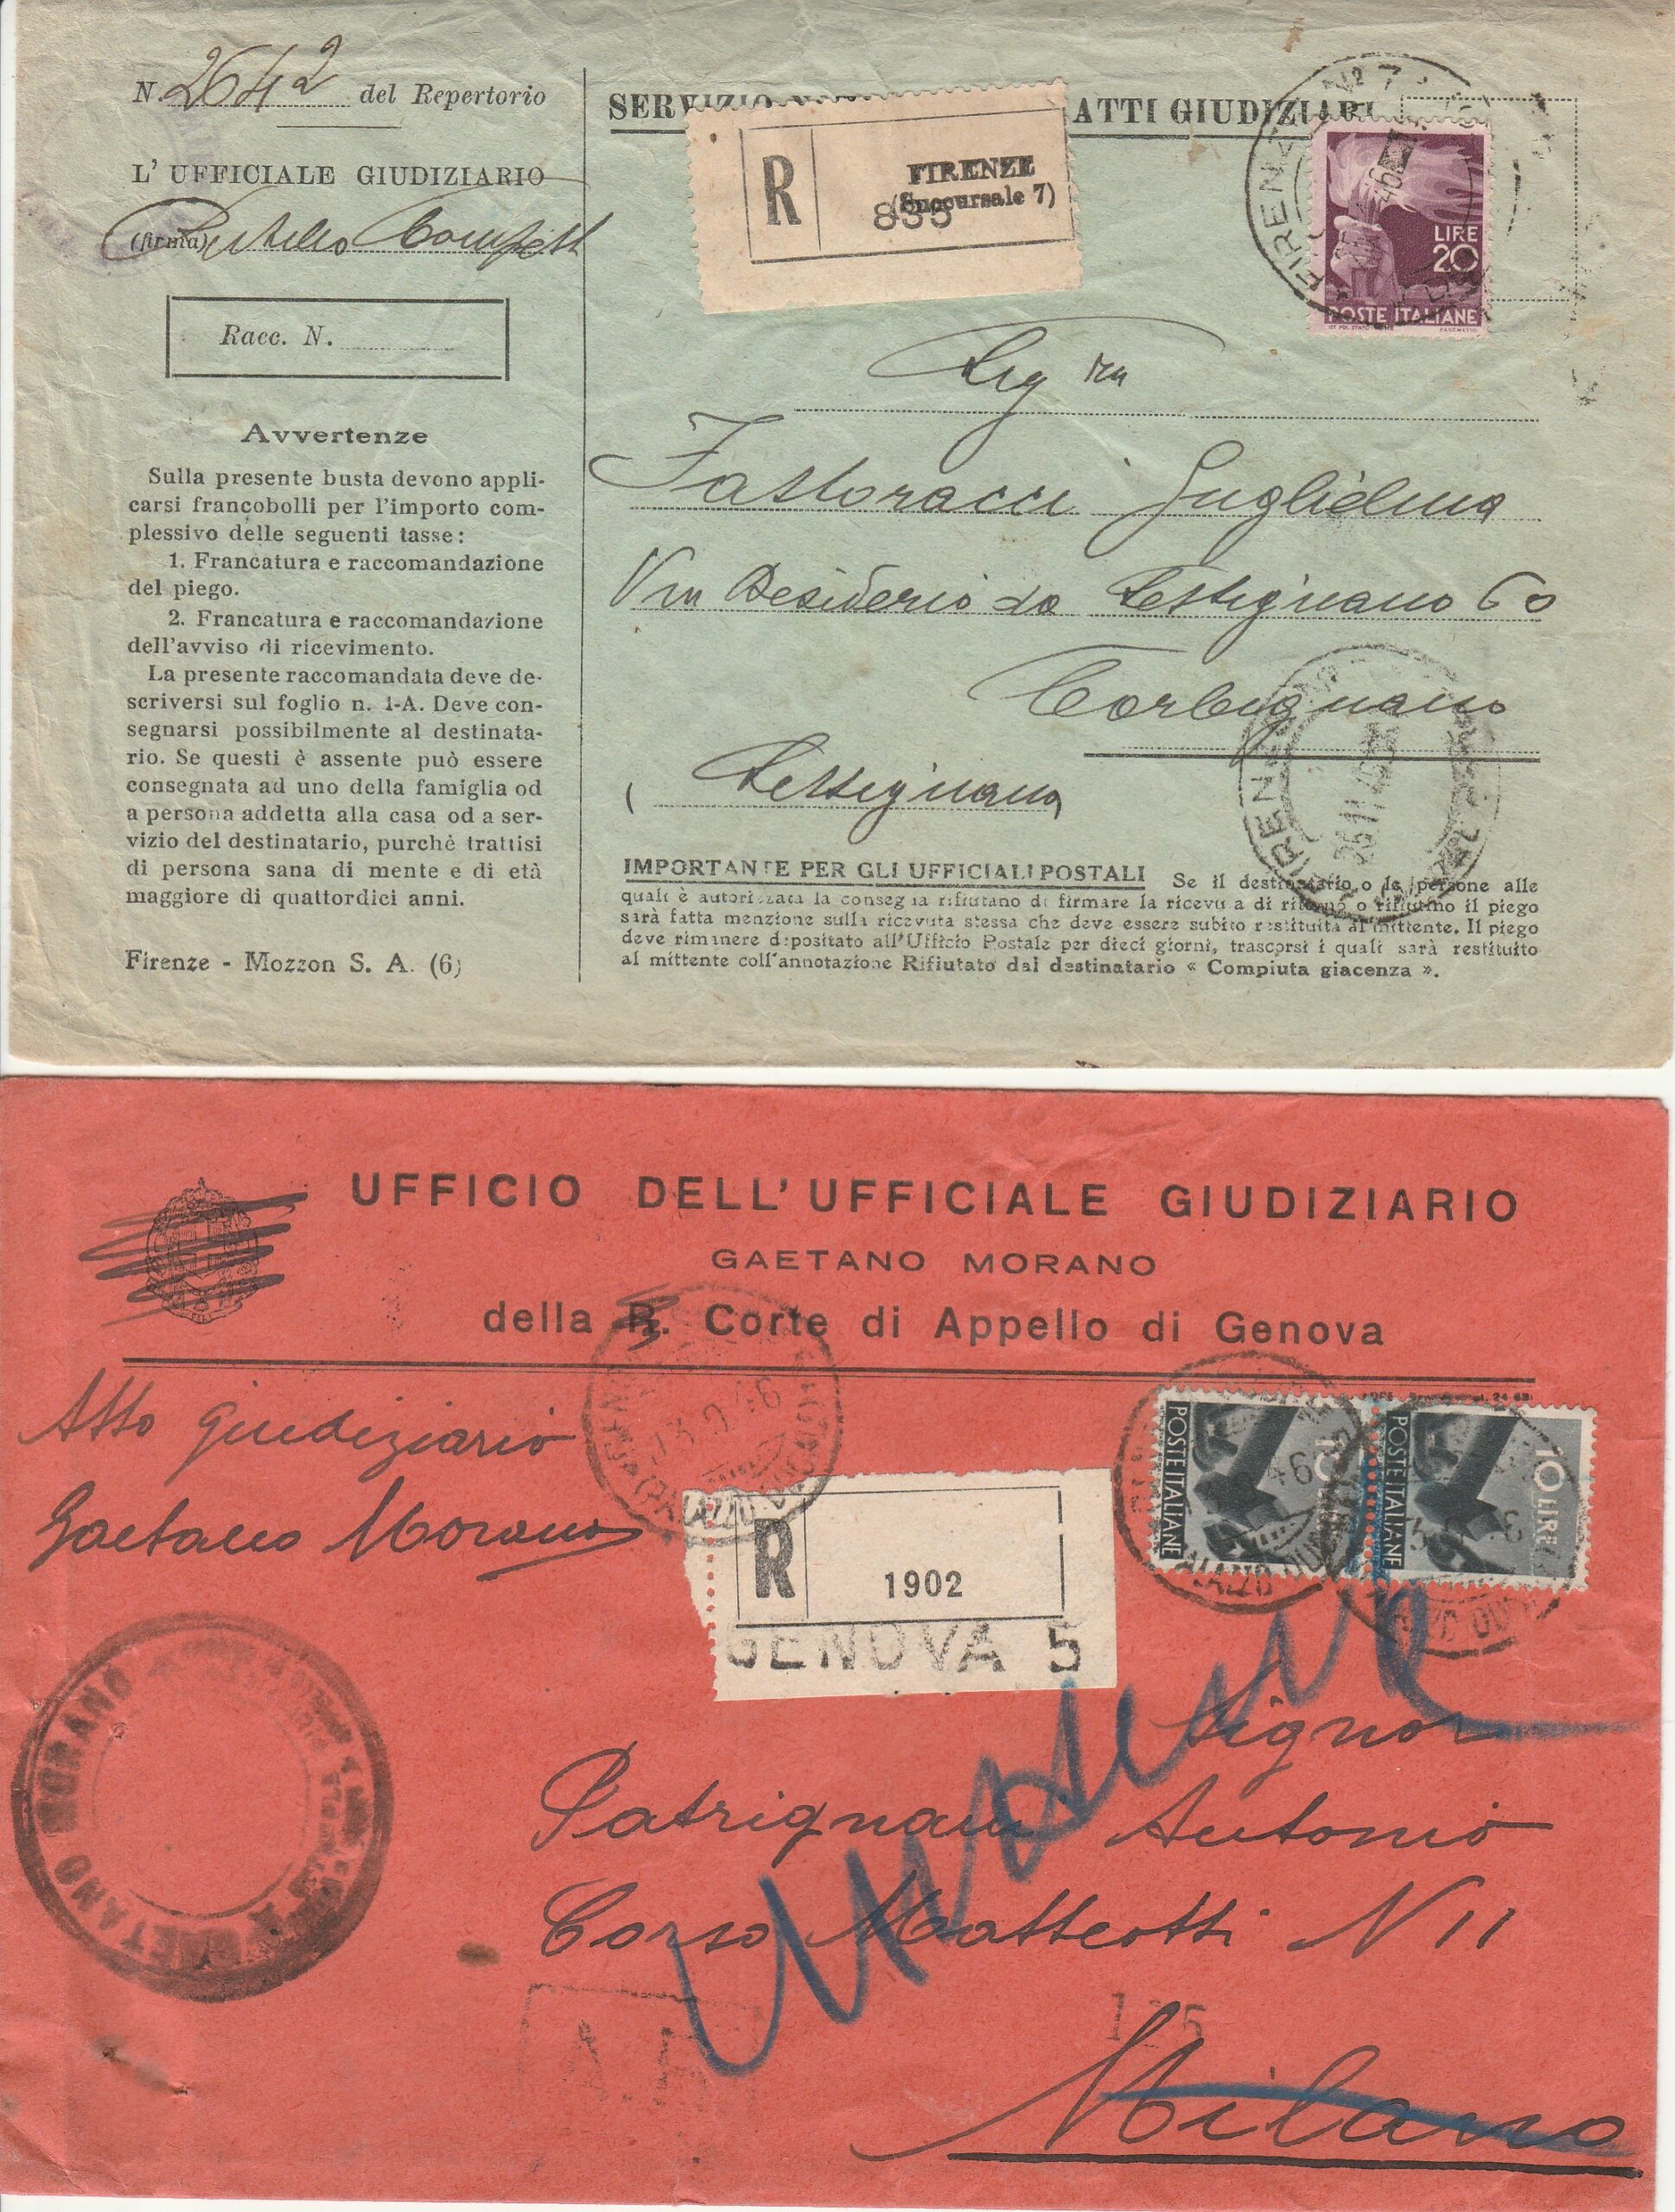 N. 2642 del Repertorio
L' UFFICIALE GIUDIZIARIO
(firma)
Racc. N.
Avvertenze
Sulla presente busta devono appli-
carsi francobolli per l'importo com-
plessivo delle seguenti tasse:
1. Francatura e raccomandazione
del piego.
2. Francatura e raccomandazione
dell'avviso di ricevimento.
La presente raccomandata deve de-
scriversi sul foglio n. 1-A. Deve con-
segnarsi possibilmente al destinata-
rio. Se questi è assente può essere
consegnata ad uno della famiglia od
a persona addetta alla casa od a ser-
vizio del destinatario, purchè trattisi
di persona sana di mente e di età
maggiore di quattordici anni.
Firenze - Mozzon S. A. (6)
ATTI GIUDIZIARI
R
FIRENZE
(Succursale 7)
835
LIRE
20
POSTE ITALIANE
Sig ra
Fattoracci Guglielma
Via Desiderio da Settignano 60
Corbignano
( Settignano
FIRENZE
IMPORTANTE PER GLI UFFICIALI POSTALI Se il destinatario o le persone alle
quali è autorizzata la consegna rifiutano di firmare la ricevuta di ritorno o rifiutino il piego
sarà fatta menzione sulla ricevuta stessa che deve essere subito restituita al mittente. Il piego
deve rimanere depositato all'Ufficio Postale per dieci giorni, trascorsi i quali sarà restituito
al mittente coll'annotazione Rifiutato dal destinatario « Compiuta giacenza ».
UFFICIO DELL'UFFICIALE GIUDIZIARIO
GAETANO MORANO
della R. Corte di Appello di Genova
Atto giudiziario
Gaetano Morano
R
1902
GENOVA 5
POSTE ITALIANE
10
POSTE ITALIANE
10 LIRE
GAETANO MORANO
Signor
Patrignani Antonio
Corso Matteotti N 11
Milano